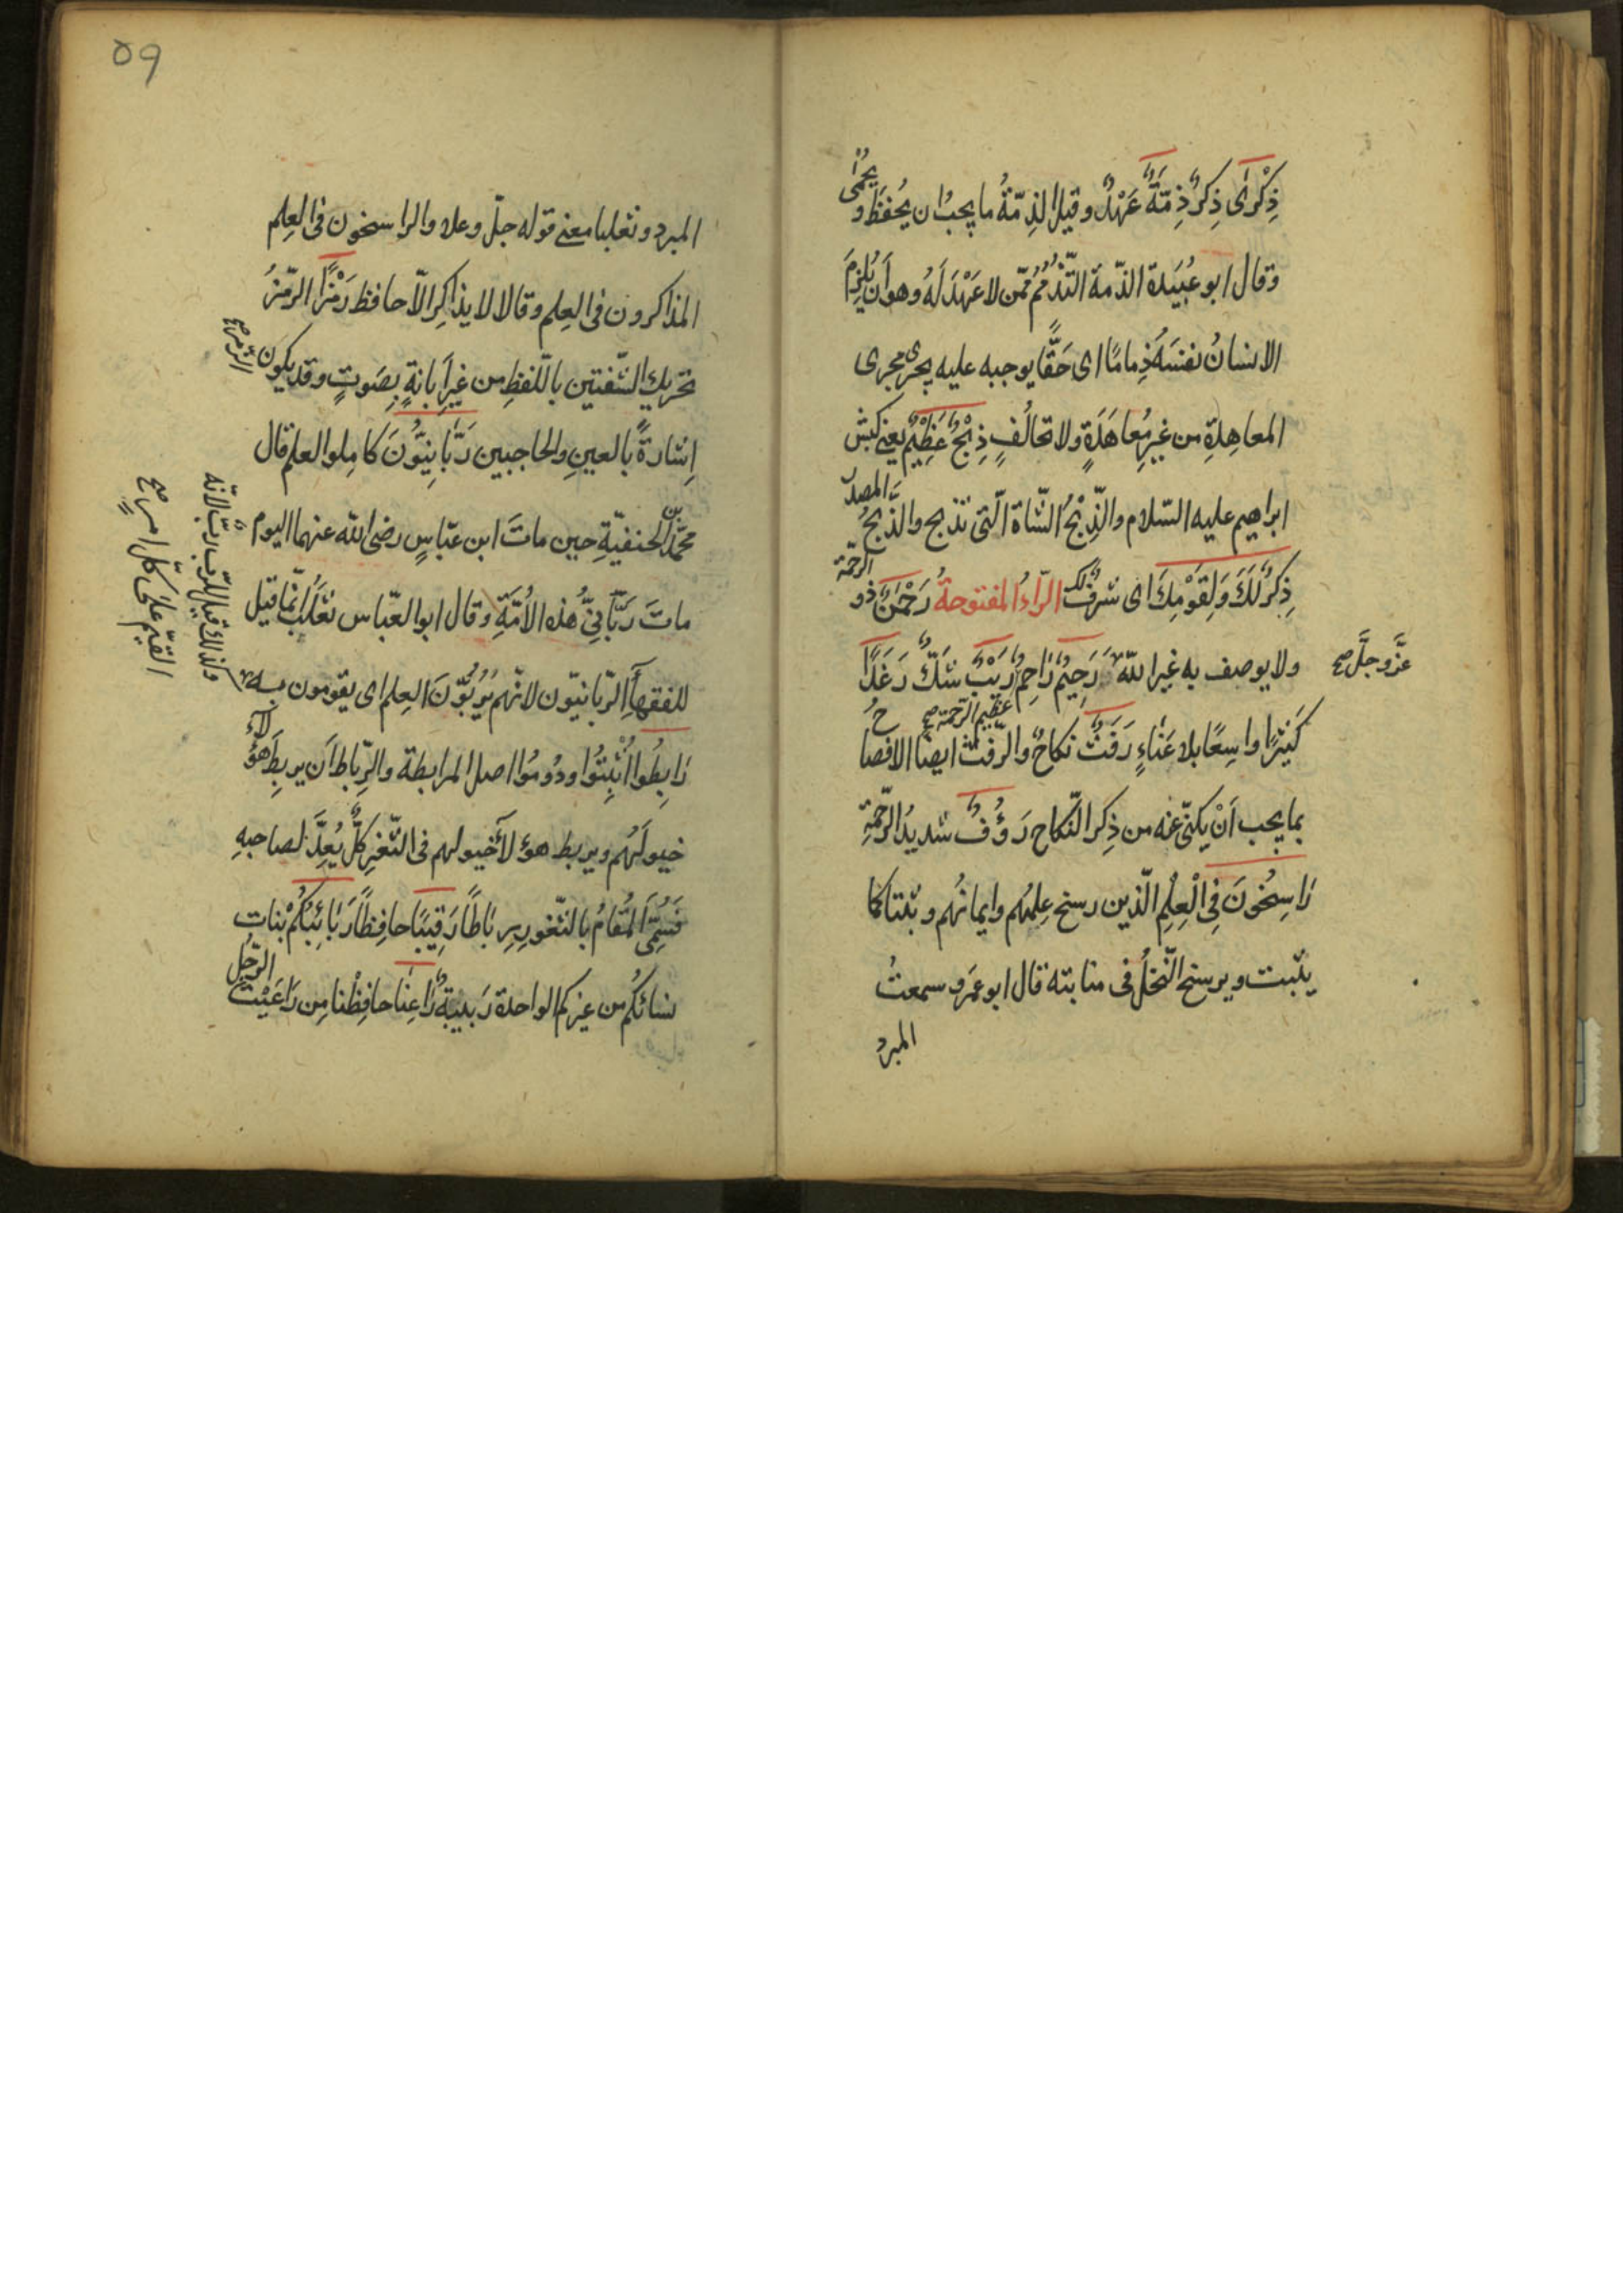 ذِكْرٰى ذِكرٌ ذِمَّةً عَهْدٌ وقيل الذِمّةُ ما يجبُ ان يُحفَظَ و يحمٰى
وقال ابو عُبَيدة الذّمة التّذمُّمُ ممّن لا عَهْدَ لَهُ وهو أن يُلزِمَ
الانسانُ نفسَهُ ذِمامًا اى حَقًّا يوجبه عليه يجرى مجرى
المعاهدةِ من غيرِ مُعاهَدَةٍ ولا تحالُفٍ ذِبْحٌ عَظِيْمٌ يعنى كبش
ابراهيم عليه السّلام والذِّبْحُ الشّاة الّتى تذبح والذَّبحُ المصدر
ذِكرٌ لَكَ وَلِقَوْمِكَ اى شرفٌ لك الرّاءُ المفتوحةُ رَحْمٰنٌ ذو الرحّمة
ولا يوصف به غير اللّه رَحِيْمٌ رَاحِمٌ رَيْبٌ شَكٌّ رَغَدًا
عزَّ وجلَّ صح
عظيم الرّحمة صح
كَثيرًا واسِعًا بلا عَناءٍ رَفَثٌ نكاحٌ والرّفث ايضًا الافصاحُ
بما يجب اَنْ يكنّى عنه من ذِكر النّكاح رَؤُفٌ شديدُ الرّحمَةِ
رَاسِخُونَ فِى الْعِلْمِ الّذين رسخ عِلمُهم وايمانُهم وثبتا كما
يثبت ويرسخ النّخلُ فى منابته قال ابو عَمرو سمعتُ
المبردُ
٥٩
المبرد وثعلبا معنى قوله جلّ وعلا والراسخون فى العِلم
المذاكرون فى العِلم وقالا لا يذاكر الّا حافظ رَمْزًا الرّمزُ
تحريك الشّفتين باللفظِ من غيرِ اِبانةٍ بِصَوتٍ وقد يكون الرّمز صح
اِشارةً بالعينِ والحاجبين رَبّانِيُّونَ كامِلوا العلم قال
محمّد بن الحنفيّةِ حين ماتَ ابن عبّاسٍ رضى اللّه عنهما اليوم
ماتَ رَبّانِىُّ هٰذه الاُمّةِ وقال ابو العبّاس ثعلَبٌ انّما قيل
للفقهآءِ الرّبانيّون لانّهم يَرُبُّونَ العِلم اى يقومون به
وكذلك قيل للرّبّ ربٌّ لانّه
القيّم على كلّ امرٍ صح
رَابِطُوا اُثْبِتُوا ودُومُوا اصل المرابطة والرّباط اَن يربِطَ هؤلآء
خيولَهُم ويربط هؤلآ خيولهم فى الثّغرِ كلٌّ يُعِدَّ لصاحبهِ
فَسُمِّىَ المُقامُ بالثّغورِ رِباطًا رَقِيبًا حافِظًا رَبائِبُكُمْ بنات
نسائكُم من غيركم الواحدة رَبيبَةٌ رٰاعِنا حافِظْنا مِن رَاعَيْتُ الرّجُل